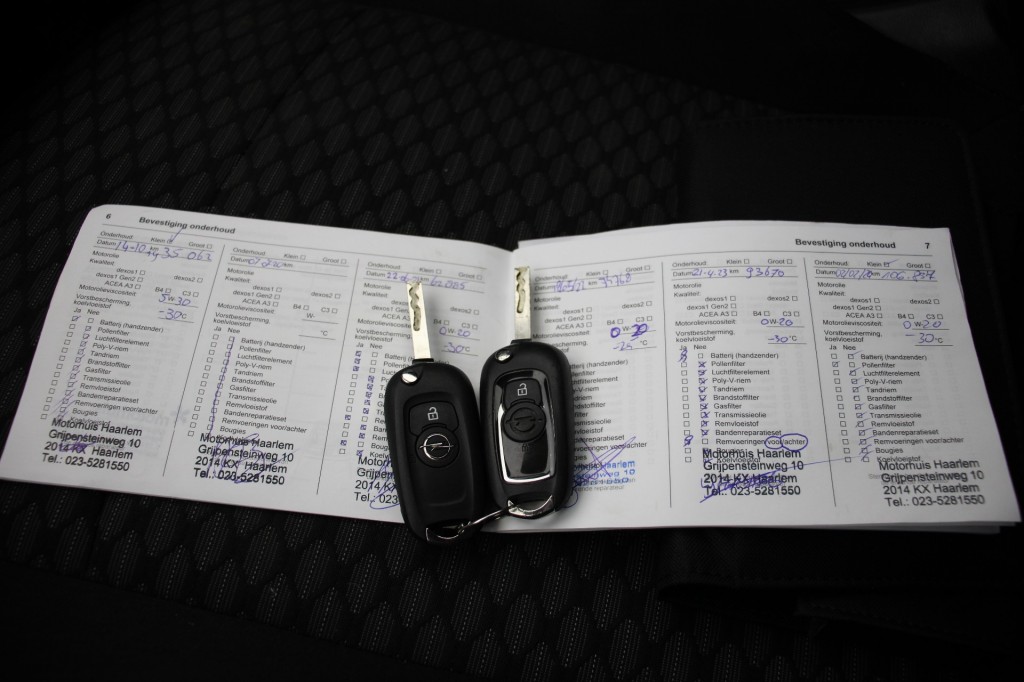 6 Bevestiging onderhoud
Onderhoud: Klein Groot
Datum 14-10 km 35 063
Motorolie
Kwaliteit:
dexos1 dexos2
dexos1 Gen2
ACEA A3 B4 C3
Motorolieviscositeit: 5W30
Vorstbescherming, koelvloeistof -30°C
Ja Nee
Batterij (handzender)
Pollenfilter
Luchtfilterelement
Poly-V-riem
Tandriem
Brandstoffilter
Gasfilter
Transmissieolie
Remvloeistof
Bandenreparatieset
Remvoeringen voor/achter
Bougies
Koelvloeistof
Motorhuis Haarlem
Grijpensteinweg 10
2014 KX Haarlem
Tel.: 023-5281550
Onderhoud: Klein Groot
Datum km
Motorolie
Kwaliteit:
dexos1 dexos2
dexos1 Gen2
ACEA A3 B4 C3
Motorolieviscositeit: W-
Vorstbescherming, koelvloeistof °C
Ja Nee
Batterij (handzender)
Pollenfilter
Luchtfilterelement
Poly-V-riem
Tandriem
Brandstoffilter
Gasfilter
Transmissieolie
Remvloeistof
Bandenreparatieset
Remvoeringen voor/achter
Bougies
Motorhuis Haarlem
Grijpensteinweg 10
2014 KX Haarlem
Tel.: 023-5281550
Onderhoud: Klein Groot
Datum km 62 085
Motorolie
Kwaliteit:
dexos1
dexos1 Gen2
ACEA A3
Motorolieviscositeit: 0W-20
Vorstbescherming, koelvloeistof -30°C
Ja Nee
Motor
Grijpen
2014
Tel.: 023
Bevestiging onderhoud 7
Onderhoud: Klein Groot
km
Motorolie
Kwaliteit:
dexos1 dexos2
dexos1 Gen2
ACEA A3 B4 C3
°C
Haarlem
Onderhoud: Klein Groot
Datum 21-4-23 km 93670
Motorolie
Kwaliteit:
dexos1 dexos2
dexos1 Gen2
ACEA A3 B4 C3
Motorolieviscositeit: 0W-20
Vorstbescherming, koelvloeistof -30°C
Ja Nee
Batterij (handzender)
Pollenfilter
Luchtfilterelement
Poly-V-riem
Tandriem
Brandstoffilter
Gasfilter
Transmissieolie
Remvloeistof
Bandenreparatieset
Remvoeringen voor/achter
Motorhuis Haarlem
Grijpensteinweg 10
2014 KX Haarlem
Tel.: 023-5281550
Onderhoud: Klein Groot
Datum km 106.857
Motorolie
Kwaliteit:
dexos1 dexos2
dexos1 Gen2
ACEA A3 B4 C3
Motorolieviscositeit: 0W-20
Vorstbescherming, koelvloeistof 30°C
Ja Nee
Batterij (handzender)
Pollenfilter
Luchtfilterelement
Poly-V-riem
Tandriem
Brandstoffilter
Gasfilter
Transmissieolie
Remvloeistof
Bandenreparatieset
Remvoeringen voor/achter
Bougies
Koelvloeistof
Motorhuis Haarlem
Grijpensteinweg 10
2014 KX Haarlem
Tel.: 023-5281550